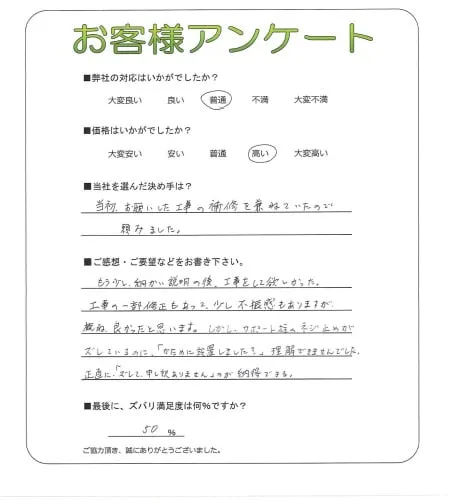 お客様アンケート
■弊社の対応はいかがでしたか?
大変良い 良い 普通 不満 大変不満
■価格はいかがでしたか?
大変安い 安い 普通 高い 大変高い
■当社を選んだ決め手は?
当初、お願いした工事の補修を兼ねていたので
頼みました。
■ご感想・ご要望などをお書き下さい。
もう少し、細かい説明の後、工事をして欲しかった。
工事の一部修正もあって、少し不信感もありますが、
概ね、良かったと思います。しかし、サポート板のネジ止めが
ズレているのに、「かために設置しました?」理解できませんでした。
正直に、「ズレて、申し訳ありません」のが納得できる。
■最後に、ズバリ満足度は何%ですか?
50 %
ご協力頂き、誠にありがとうございました。